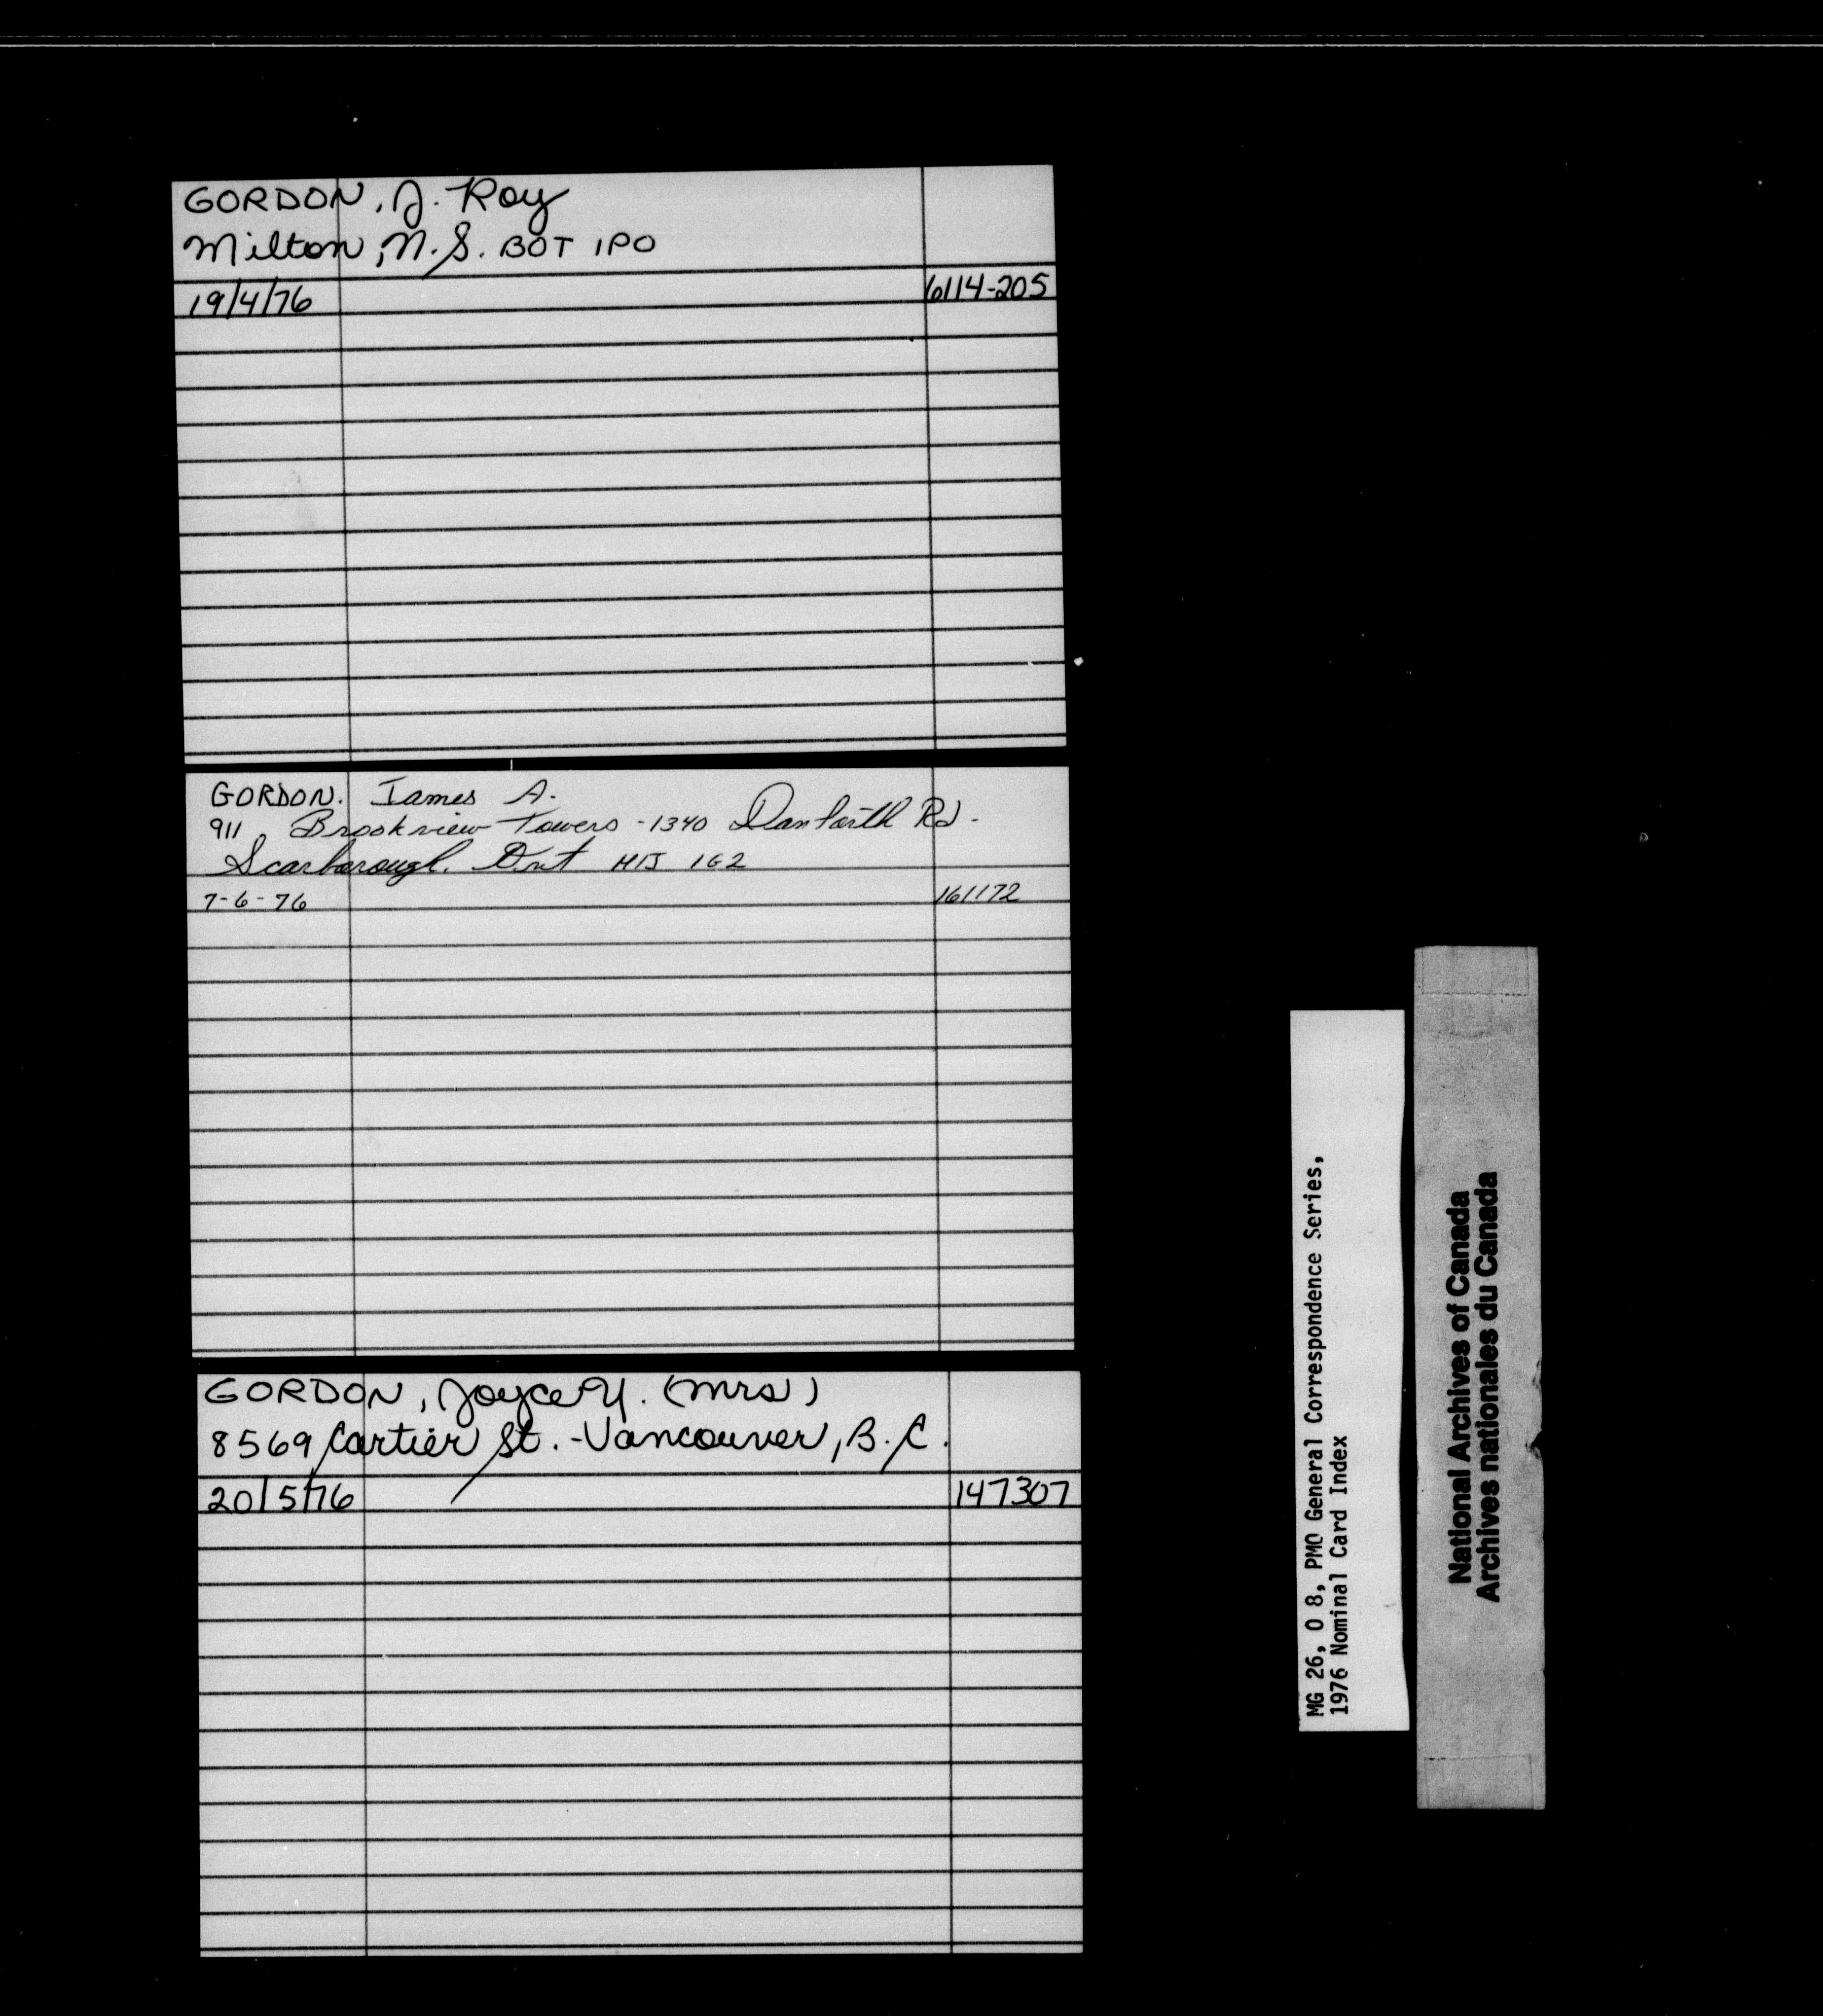 GORDON, J. Roy
Milton, N.S. BOT 1P0
19/4/76 6114-205
GORDON. James A.
911 Brookview Towers - 1340 Danforth Rd.
Scarborough. Ont M1J 1G2
7-6-76 161172
GORDON, Joyce Y. (Mrs)
8569 Cartier St. - Vancouver, B.C.
20/5/76 147307
MG 26, O 8, PMO General Correspondence Series,
1976 Nominal Card Index
National Archives of Canada
Archives nationales du Canada